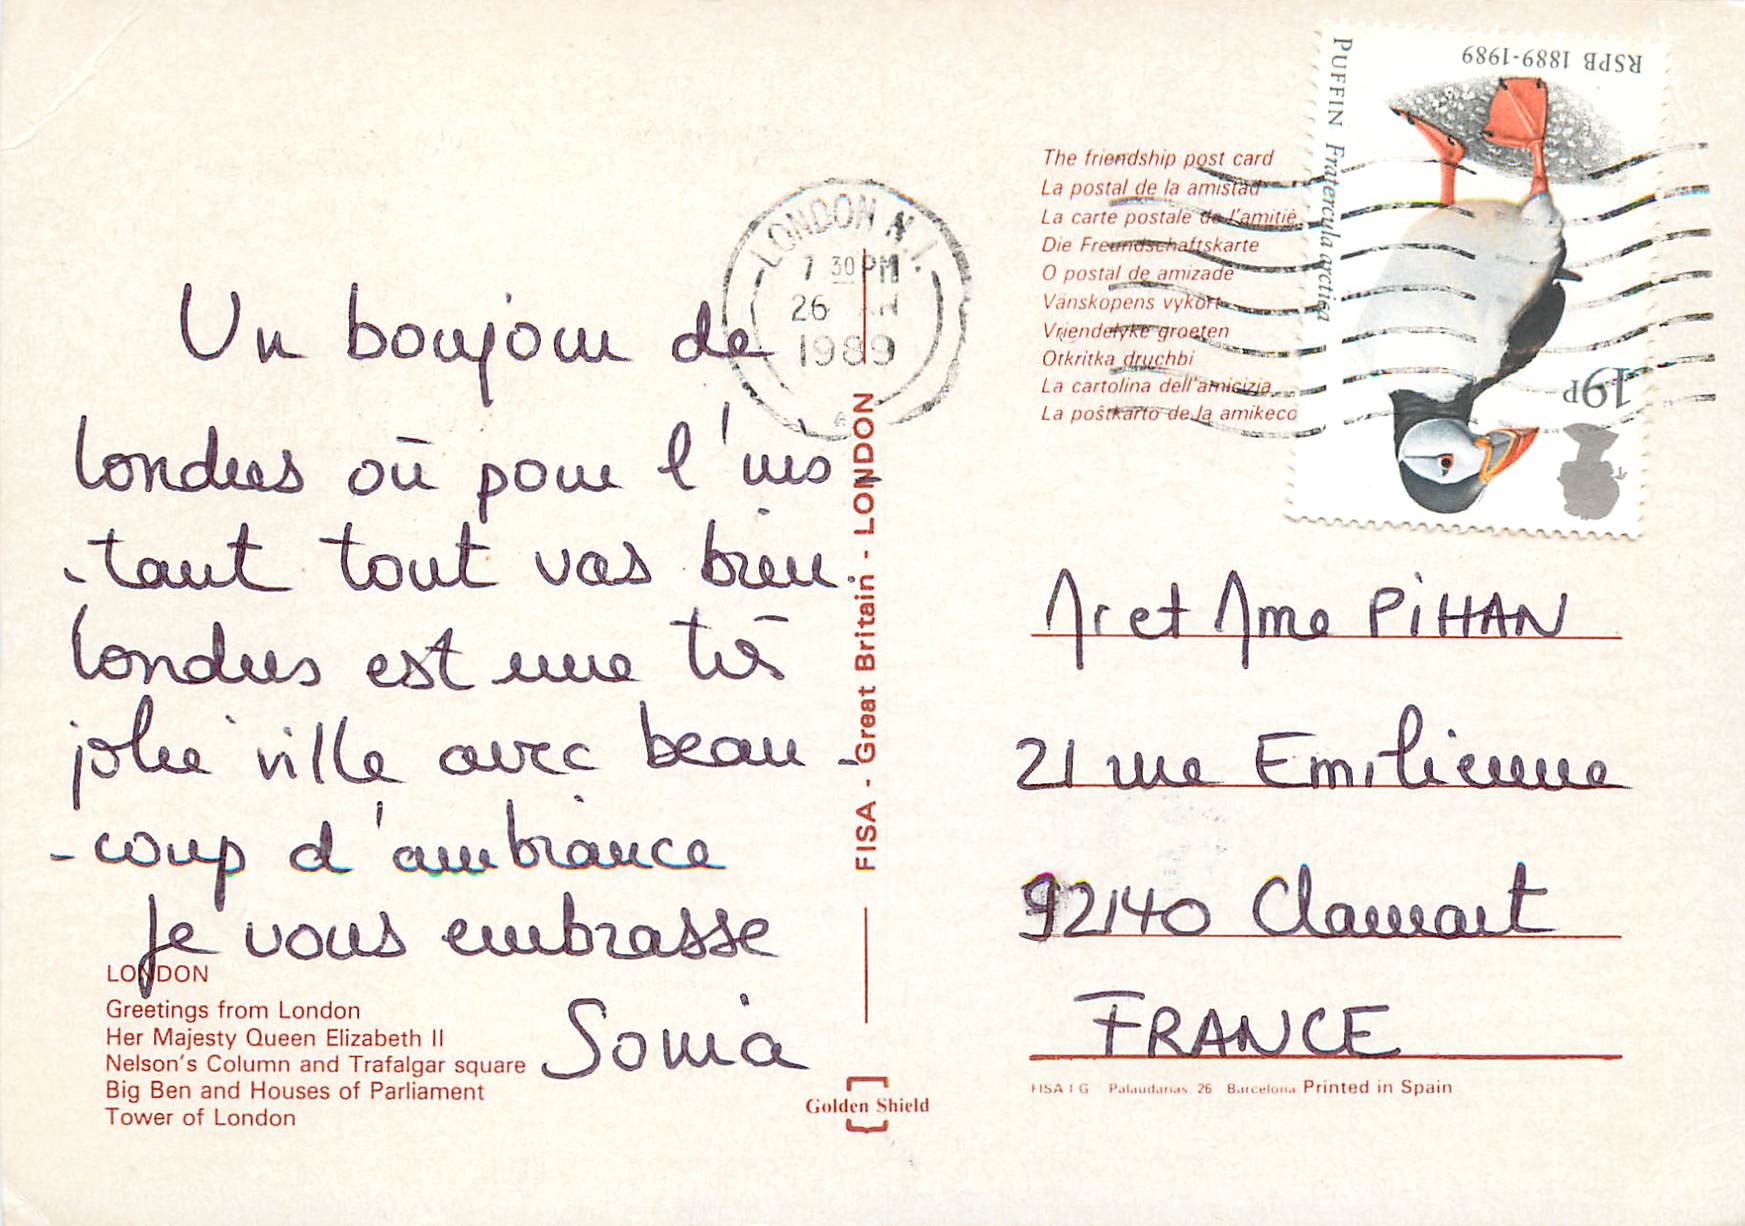 Un boujour de
londres où pour l'ins-
-tant tout vas bien.
londres est une très
jolie ville avec beau-
-coup d'ambiance
Je vous embrasse
Sonia
LONDON
Greetings from London
Her Majesty Queen Elizabeth II
Nelson's Column and Trafalgar square
Big Ben and Houses of Parliament
Tower of London
LONDON N.1.
7 30 PM
26
1989
FISA - Great Britain - LONDON
Golden Shield
The friendship post card
La postal de la amistad
La carte postale de l'amitié
Die Freundschaftskarte
O postal de amizade
Vänskopens vykort
Vriendelyke groeten
Otkritka druchbi
La cartolina dell'amicizia
La poŝtkarto de la amikeco
RSPB 1889-1989
PUFFIN Fratercula arctica
19P
Mr et Mme PiHAN
21 rue Emilienne
92140 Clamart
FRANCE
FISA I G Palaudarias, 26 Barcelona Printed in Spain